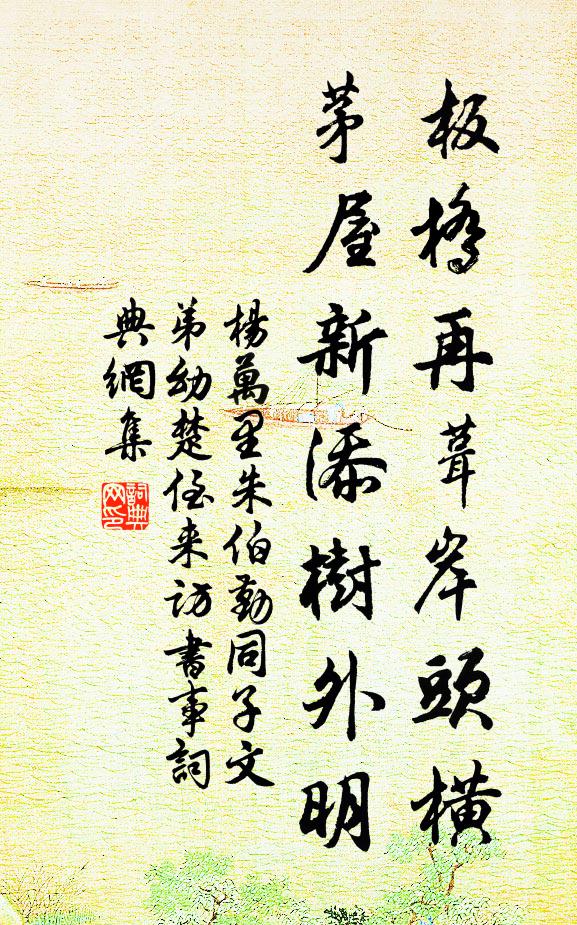 板橋再葺岸頭橫
茅屋新添樹外明
楊萬里朱伯勤同子文
弟幼楚侄来訪書事詞
典網集
詞典
网印